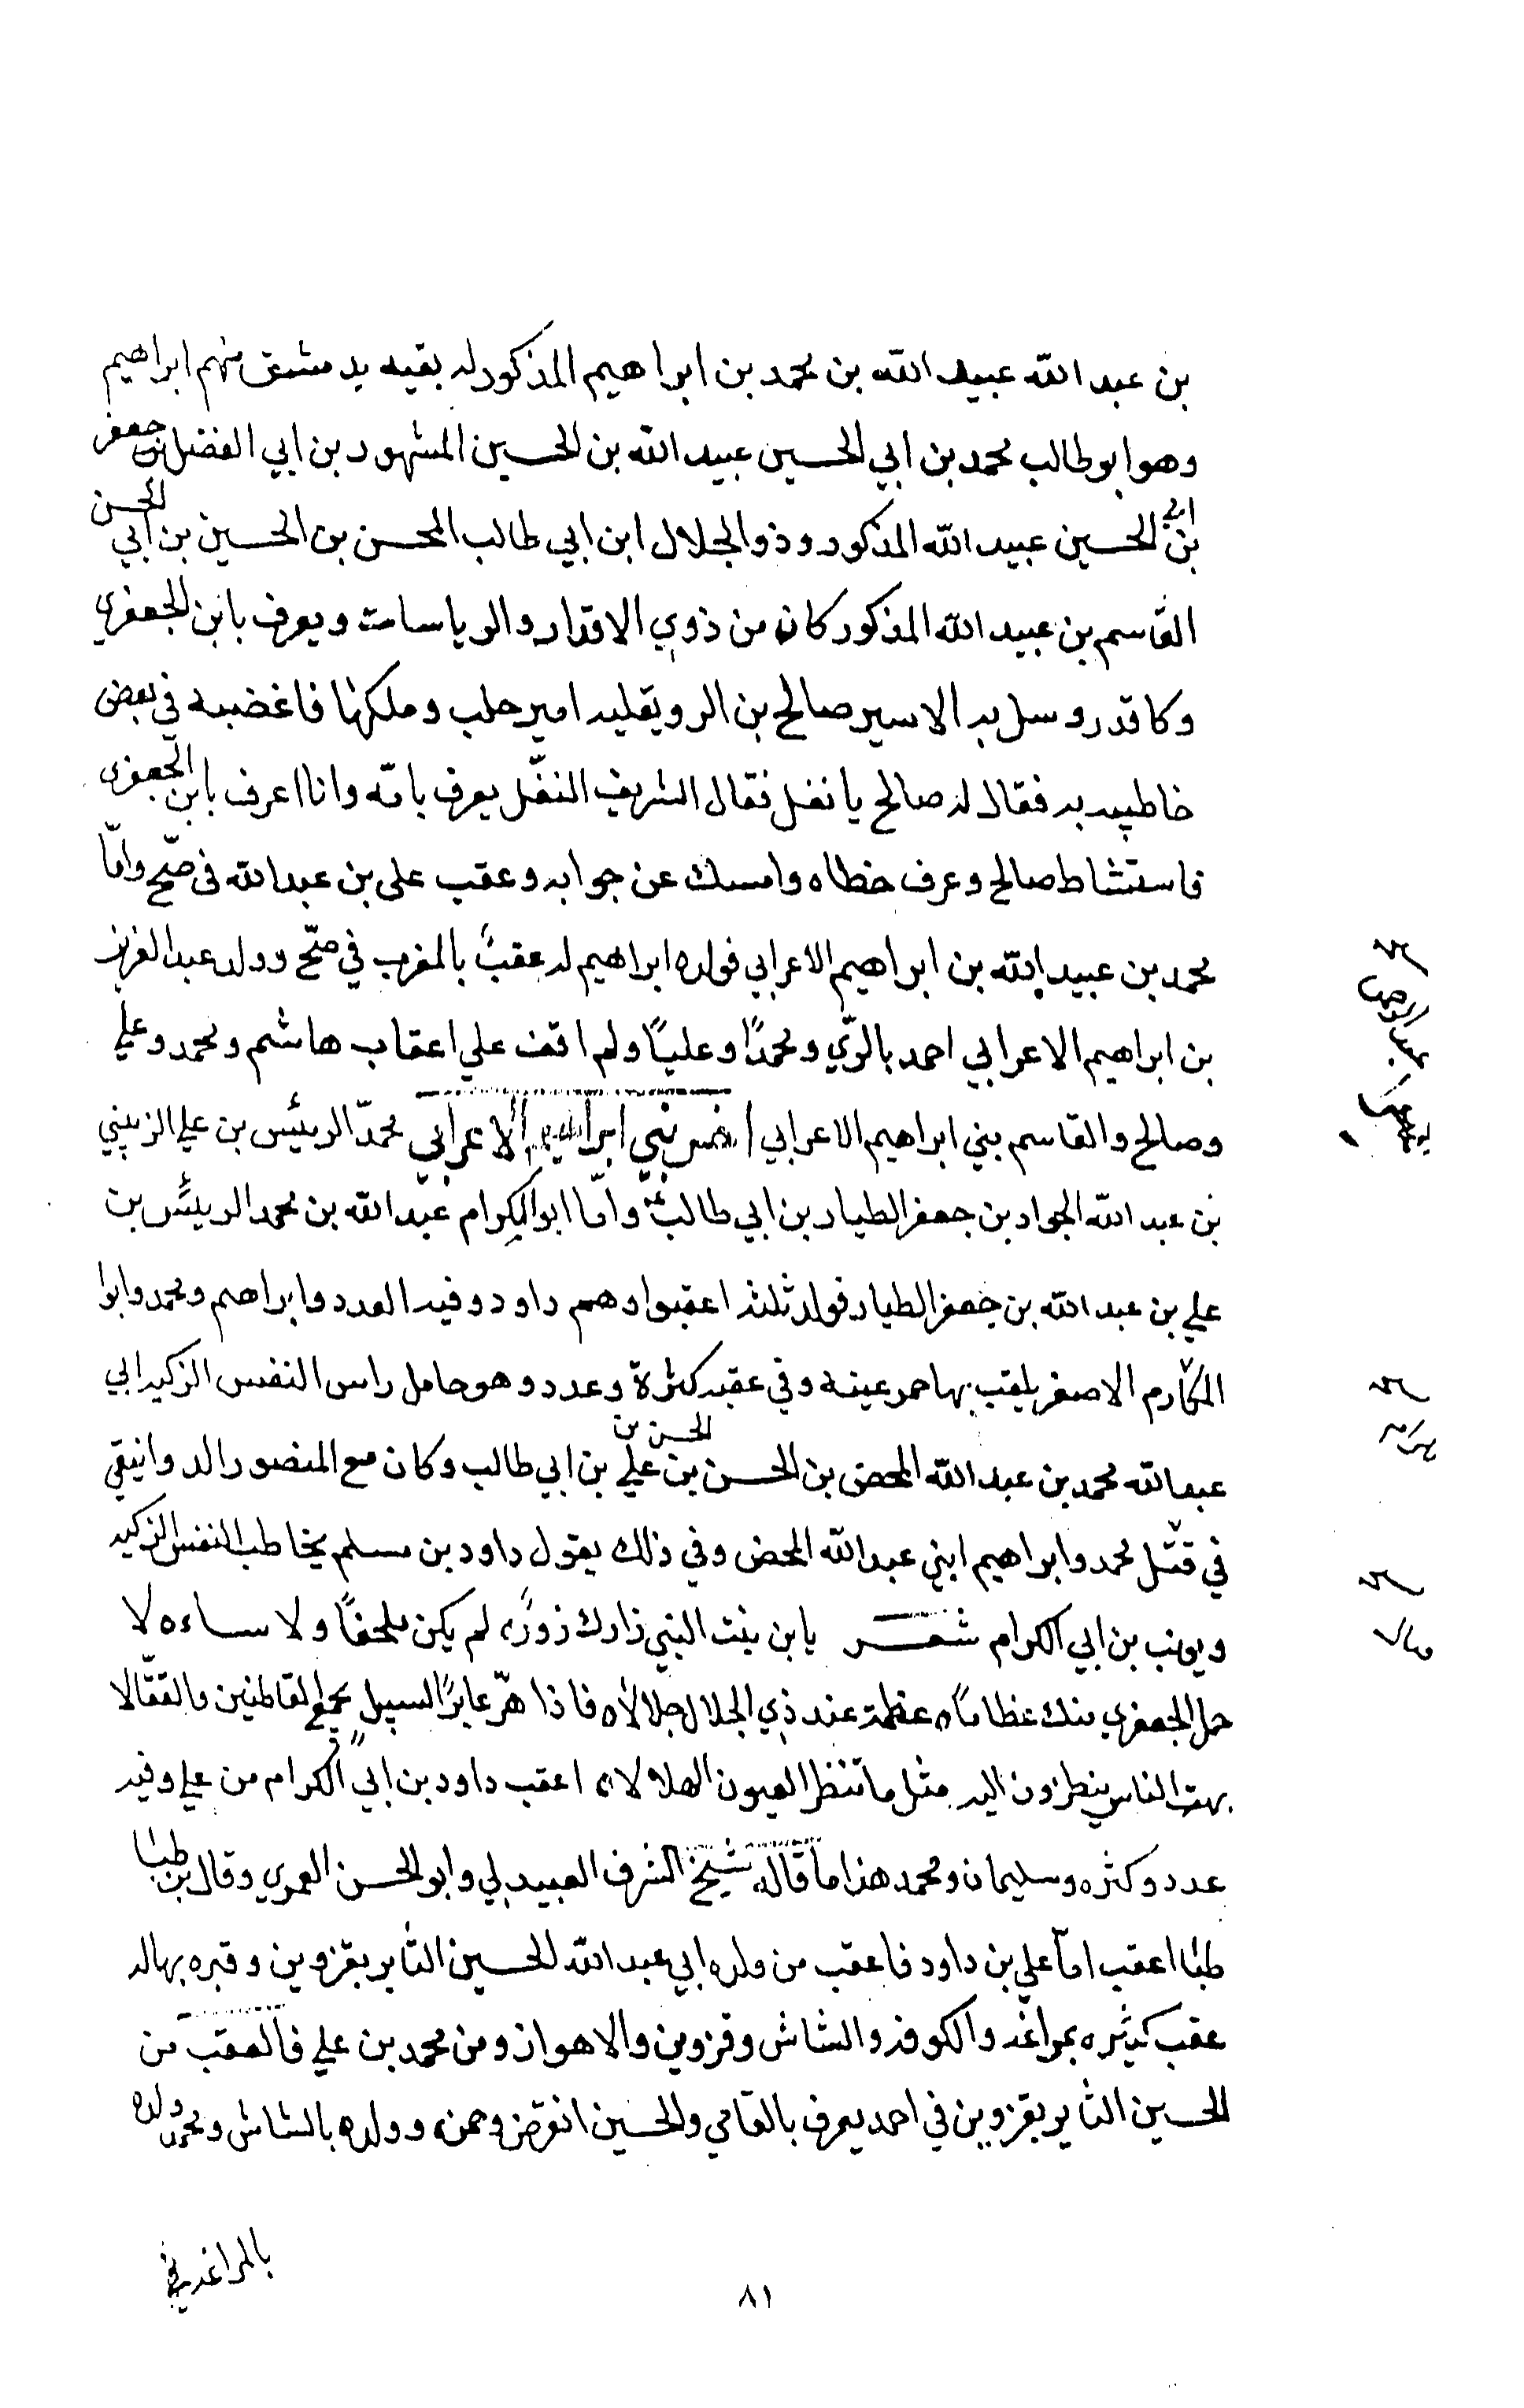 بن عبد الله عبيد الله بن محمد بن ابراهيم المذكور له بقيه بدمشق منهم ابراهيم
وهو ابو طالب محمد بن ابي الحسين عبيد الله بن الحسين المشهور بن ابي الفضل بن جعفر
بن ابي الحسين عبيد الله المذكور وذو الجلال ابن ابي طالب المحسن بن الحسين بن ابي الحسن
القاسم بن عبيد الله المذكور كان من ذوي الاقدار والرياسات ويعرف بابن الجعفري
وكا قدروسل به الاسير صالح بن الرويقليه امير حلب وملكها فاغضبه في بعض
خاطبه به فقال له صالح يا نغل فقال الشريف النغل يعرف بامّه وانا اعرف بابن الجعفري
فاستشاط صالح وعرف خطاه وامسك عن جوابه وعقب علي بن عبد الله في صّح وامّا
محمد بن عبيد الله بن ابراهيم الاعرابي فولده ابراهيم له عقبً بالمغرب في صّح وولد عبد العزيز
بن ابراهيم الاعرابي احمد بالرّي ومحمدًا وعليًا ولم اقف علي اعقاب هاشم ومحمد وعلي
وصالح والقاسم بني ابراهيم الاعرابي بني ابراهيم الاعرابي محمدّ الرئيس بن علي الزينبي
بن عبد الله الجواد بن جعفر الطيار بن ابي طالب وامّا ابو الكرام عبد الله بن محمد الرئيس بن
علي بن عبد الله بن جعفر الطيار فولد ثلثه اعقبوا وهم داود وفيه العدد وابراهيم ومحمد وابوا
المكارم الاصغر يلقب بها حمر عينه وفي عقبه كثرة وعدد وهو حامل راس النفس الزكيه ابي
عبد الله محمد بن عبد الله المحض بن الحسن بن الحسن بن علي بن ابي طالب وكان مع المنصور الدوانيقي
في قتل محمد وابراهيم ابني عبد الله المحض وفي ذلك يقول داود بن مسلم يخاطب النفس الزكيه
ويونب بن ابي الكرام شعر يابن بنت النبي زارك زورً لم يكن ملحفًا ولا ساءه لا
حمل الجعفري منك عظامًا عظمة عند ذي الجلال جلالا فاذا مرّ عابرًا لسبيل بجمع القاطنين والقفّالا
بهت الناس ينظرون اليه مثل ما تنظر العيون الهلالا اعقب داود بن ابي الكرام من علي وفيه
عدد وكثره وسليمان ومحمد هذا ما قاله شيخ الشرف العبيدلي وابو الحسن العمري وقال بن طبا
طبا اعقب امّا علي بن داود فاعقب من ولده ابي عبد الله الحسين الثاير بقزوين وقبره بها له
عقب كثيره بمراغه والكوفه والشاش وقزوين والاهواز ومن محمد بن علي فالعقب من
الحسين الثاير بقزوين في احمد يعرف بالقامي والحسين انقرض وحمزه وولده بالشاش ومحمد ولده
بالمراغه في
٨١